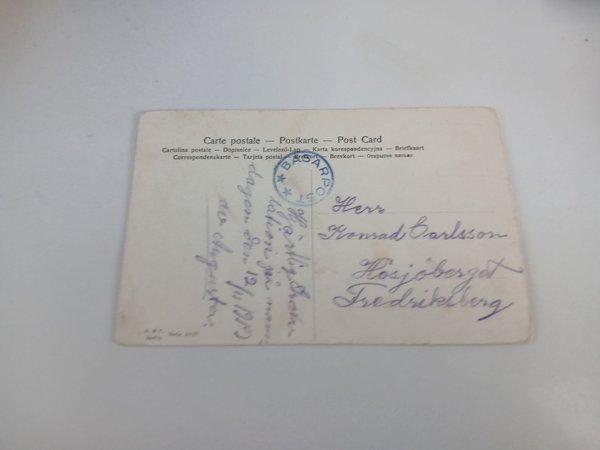 Carte postale — Postkarte — Post Card
Cartolina postale — Dopisnice — Levelező-Lap — Karta korespondencyjna — Briefkaart
Correspondenskarte — Tarjeta postal — Brefkort — Brevkort — Открытое письмо
★ BASARPOST ★
Herr
Konrad Carlsson
Hösjöberget
Fredriksberg
Hjärtlig
lation på namns
dagen den 12/11
av Augusta
Serie